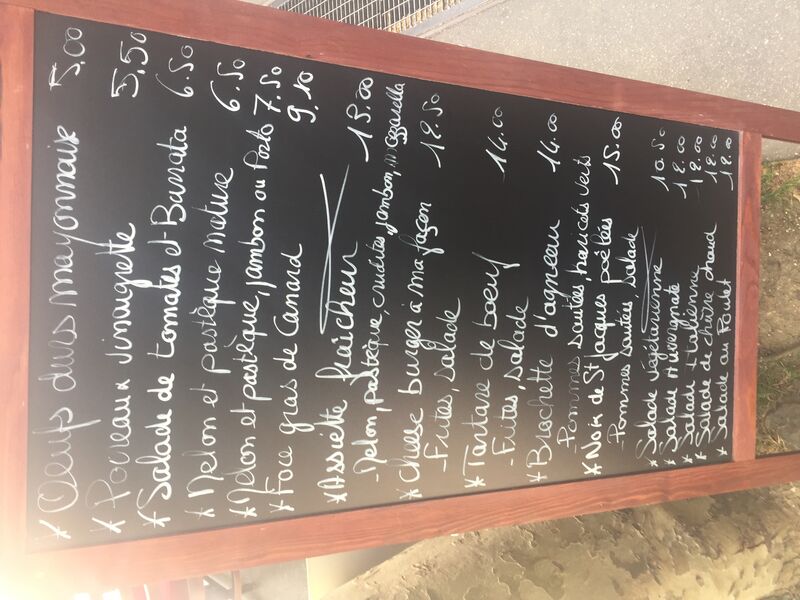 * Oeufs durs mayonnaise 5,00
* Poireaux vinaigrette 5,50
* Salade de tomates et Burrata 6.50
* Melon et pastèque nature 6.50
* Melon et pastèque, jambon ou Porto 7.50
* Foie gras de Canard 9.10
* Assiette fraîcheur 13.00
- Melon, pastèque, crudités, jambon, mozzarella
* Cheese burger à ma façon 12.50
- Frites, salade
* Tartare de boeuf 14.00
- Frites, salade
* Brochette d'agneau 14.00
- Pommes sautées haricots verts
* Noix de St Jacques poêlées 15.00
- Pommes sautées, salade
* Salade Végétarienne 10.50
* Salade Auvergnate 12.00
* Salade Italienne 12.00
* Salade de chèvre chaud 12.00
* Salade au Poulet 12.00